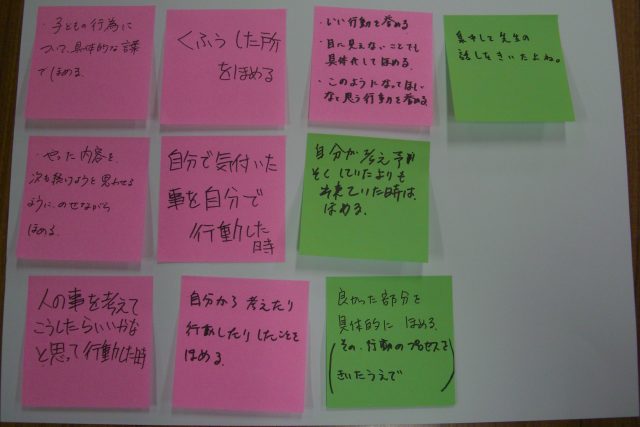 ・子どもの行為に
ついて、具体的な言葉
でほめる。
くふうした所
をほめる
・いい行動を誉める
・目に見えないことでも
具体化してほめる。
・このようになってほしい
なと思う行動を誉める
集中して先生の
話しをきいたよね。
・やった内容を、
次も続けようと思わせる
ように、のせながら
ほめる。
自分で気付いた
事を自分で
行動した
時
自分が考え予測
していたよりも
出来ていた時は、
ほめる。
人の事を考えて
こうしたらいいかな
と思って行動した時
自分から考えたり
行動したりしたことを
ほめる。
良かった部分を
具体的にほめる。
(その、行動のプロセスを
きいたうえで)